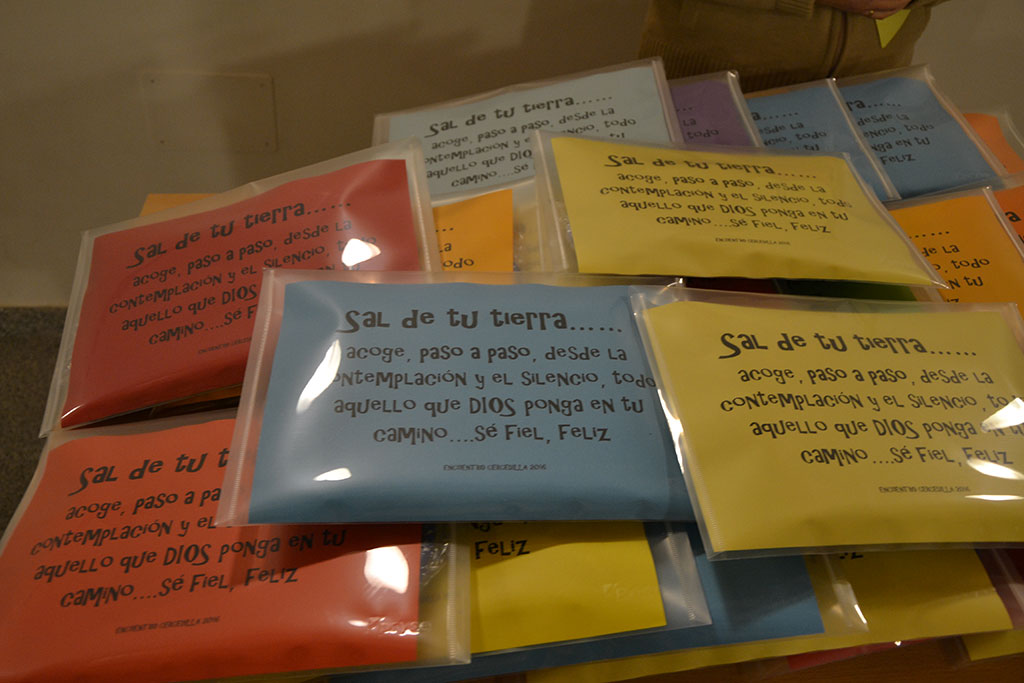 Sal de tu tierra......
acoge, paso a paso, desde la
contemplación y el silencio, todo
aquello que DIOS
camino....Sé
la
todo
la
, todo
Feliz
Sal de tu tierra......
acoge, paso a paso, desde la
contemplación y el silencio, todo
aquello que DIOS ponga en tu
camino....Sé Fiel, Feliz
ENCUENTRO CERCEDILLA 2016
Sal de tu tierra......
acoge, paso a paso, desde la
contemplación y el silencio, todo
aquello que DIOS ponga en tu
camino....Sé Fiel
ENCUENTRO CERCEDILLA 2016
la
todo
, todo
en tu
Sal de tu tierra......
acoge, paso a paso, desde la
contemplación y el silencio, todo
aquello que DIOS ponga en tu
camino....Sé Fiel, Feliz
ENCUENTRO CERCEDILLA 2016
Sal de tu tierra......
acoge, paso a paso, desde la
contemplación y el silencio, to
aquello que DIOS ponga en tu
camino....Sé Fiel, Feliz
ENCUENTRO CERCEDILLA 2016
Sal de tu t
acoge, paso a pa
contemplación y el
aquello que DIOS ponga en tu
camino....Sé Fiel, Feliz
ENCUENTRO CERCEDILLA 2016
Feliz